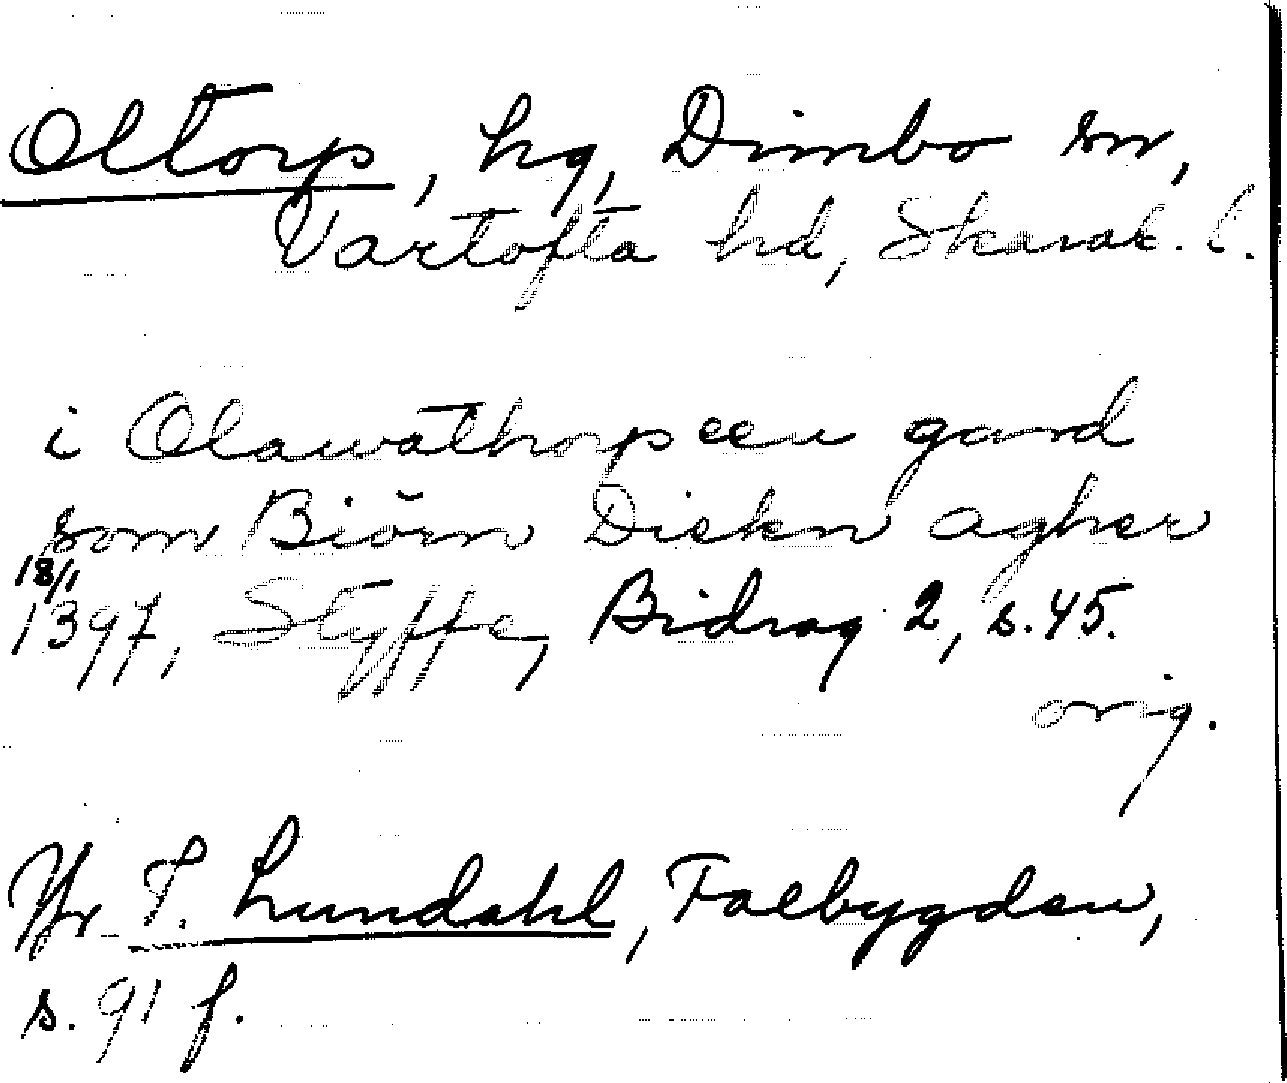 Oltorp, hg, Dimbo sn,
Vartofta hd, Skarab. l.
i Olawathorp een gard
som Biörn Diekn agher
18/1
1397, Styffe, Bidrag 2, s. 45.
orig.
Yfr I. Lundahl, Falbygden,
s. 91 f.